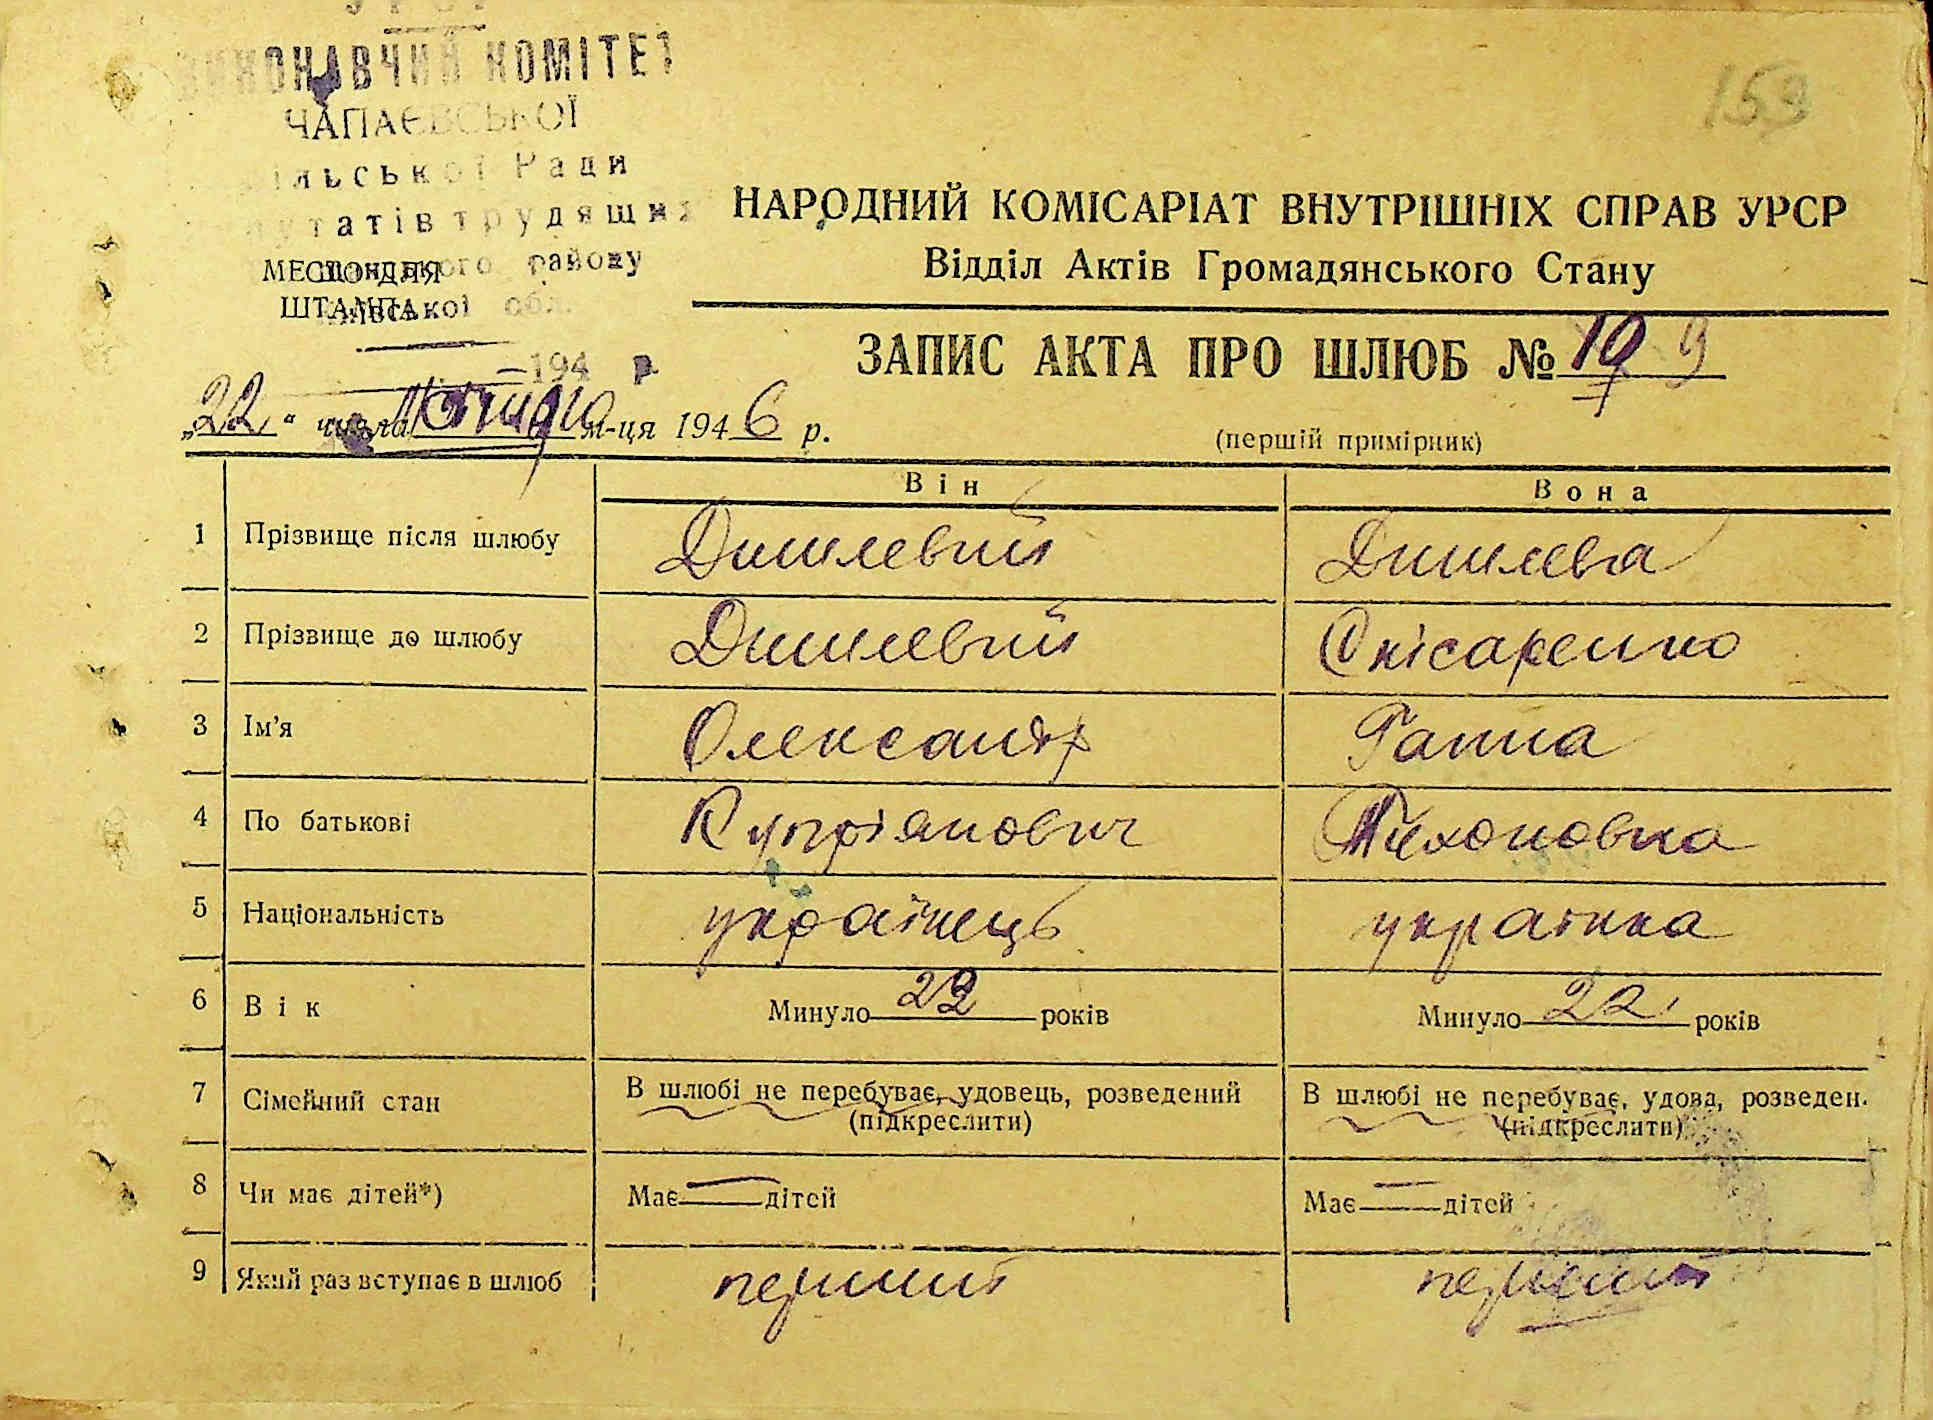 УРСР
ВИКОНАВЧИЙ КОМІТЕТ
ЧАПАЄВСЬКОЇ
сільської Ради
депутатів трудящих
району
обл.
194 р.
159
НАРОДНИЙ КОМІСАРІАТ ВНУТРІШНІХ СПРАВ УРСР
Відділ Актів Громадянського Стану
МЕСЦО ДЛЯ
ШТАМПА
ЗАПИС АКТА ПРО ШЛЮБ №
„22“ числа м-ця 1946 р.
(першій примірник)
Він Вона
1 Прізвище після шлюбу Дишлевий Дишлева
2 Прізвище до шлюбу Дишлевий Снісаренко
3 Ім'я Олександр Ганна
4 По батькові Купріянович Тихоновна
5 Національність українець українка
6 Вік Минуло років Минуло 22 років
7 Сімейний стан В шлюбі не перебуває, удовець, розведений В шлюбі не перебуває, удова, розведен.
(підкреслити) (підкреслити)
8 Чи має дітей*) Має — дітей Має — дітей
9 Який раз вступає в шлюб перший перший